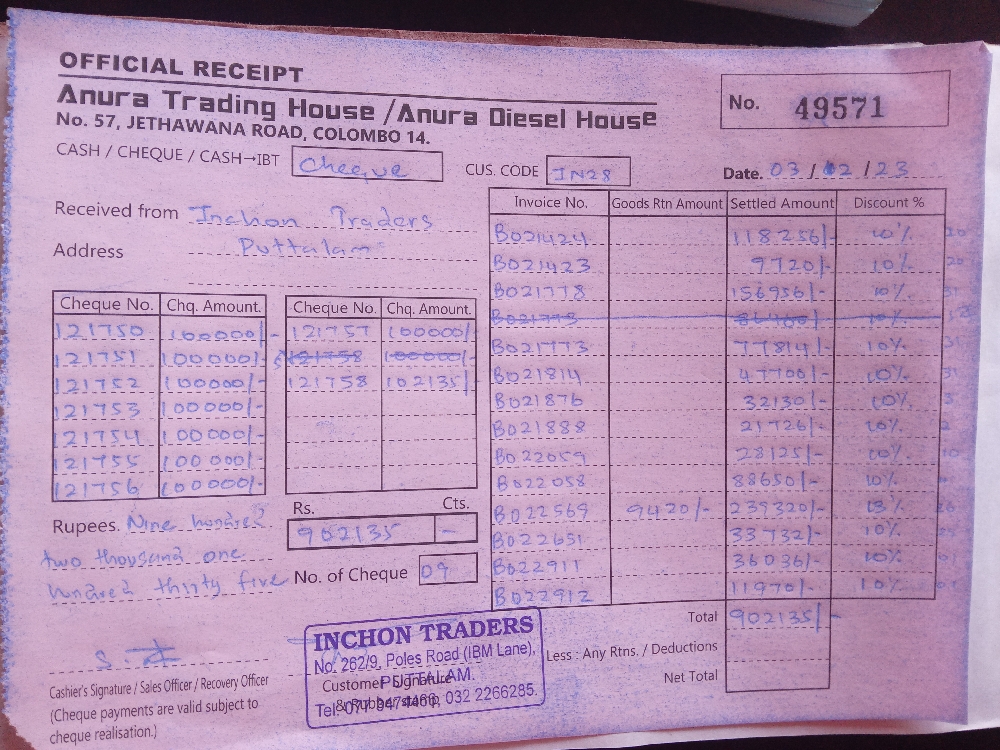 OFFICIAL RECEIPT
Anura Trading House /Anura Diesel House
No. 57, JETHAWANA ROAD, COLOMBO 14.
No. 49571
CASH / CHEQUE / CASH→IBT Cheque
CUS. CODE IN28
Date. 03/02/23
Received from Inchon Traders
Address Puttalam
Cheque No. Chq. Amount. Cheque No. Chq. Amount.
121750 100000/- 121757 100000/-
121751 100000/- 121758 100000/-
121752 100000/- 121758 102135/-
121753 100000/-
121754 100000/-
121755 100000/-
121756 100000/-
Rupees. Nine hundred
two thousand one
hundred thirty five
Rs. Cts.
902135 -
No. of Cheque 09
Invoice No. Goods Rtn Amount Settled Amount Discount %
B021424 118256/- 10%
B021423 9720/- 10%
B021778 156956/- 10%
B021773 77814/- 10%
B021814 47700/- 10%
B021876 32130/- 10%
B021888 21726/- 10%
B022059 28125/- 10%
B022058 88650/- 10%
B022569 9420/- 239320/-
B022651 33732/- 10%
B022911 36036/- 10%
B022912 11970/- 10%
Total 902135/-
Less : Any Rtns. / Deductions
Net Total
Cashier's Signature / Sales Officer / Recovery Officer
(Cheque payments are valid subject to
cheque realisation.)
INCHON TRADERS
No. 262/9, Poles Road (IBM Lane),
PUTTALAM.
Customer Signature
Tel: 032 2266285.